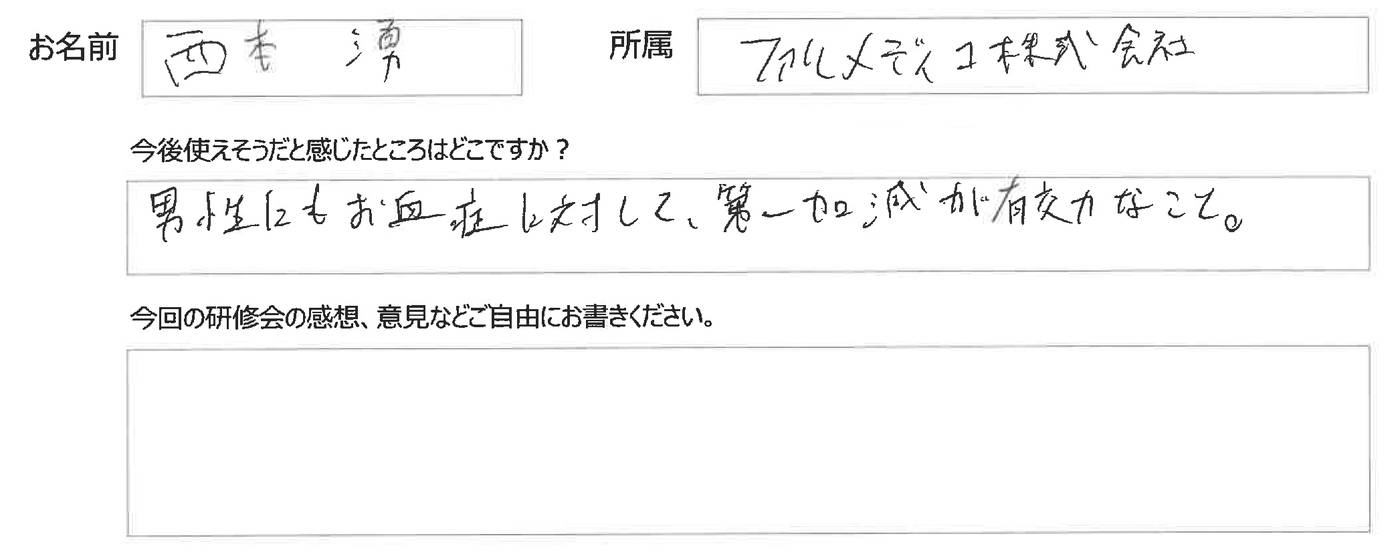 お名前 西本 湧 所属 ファルメディコ株式会社
今後使えそうだと感じたところはどこですか？
男性にもお血症に対して、第一加減が有効なこと。
今回の研修会の感想、意見などご自由にお書きください。